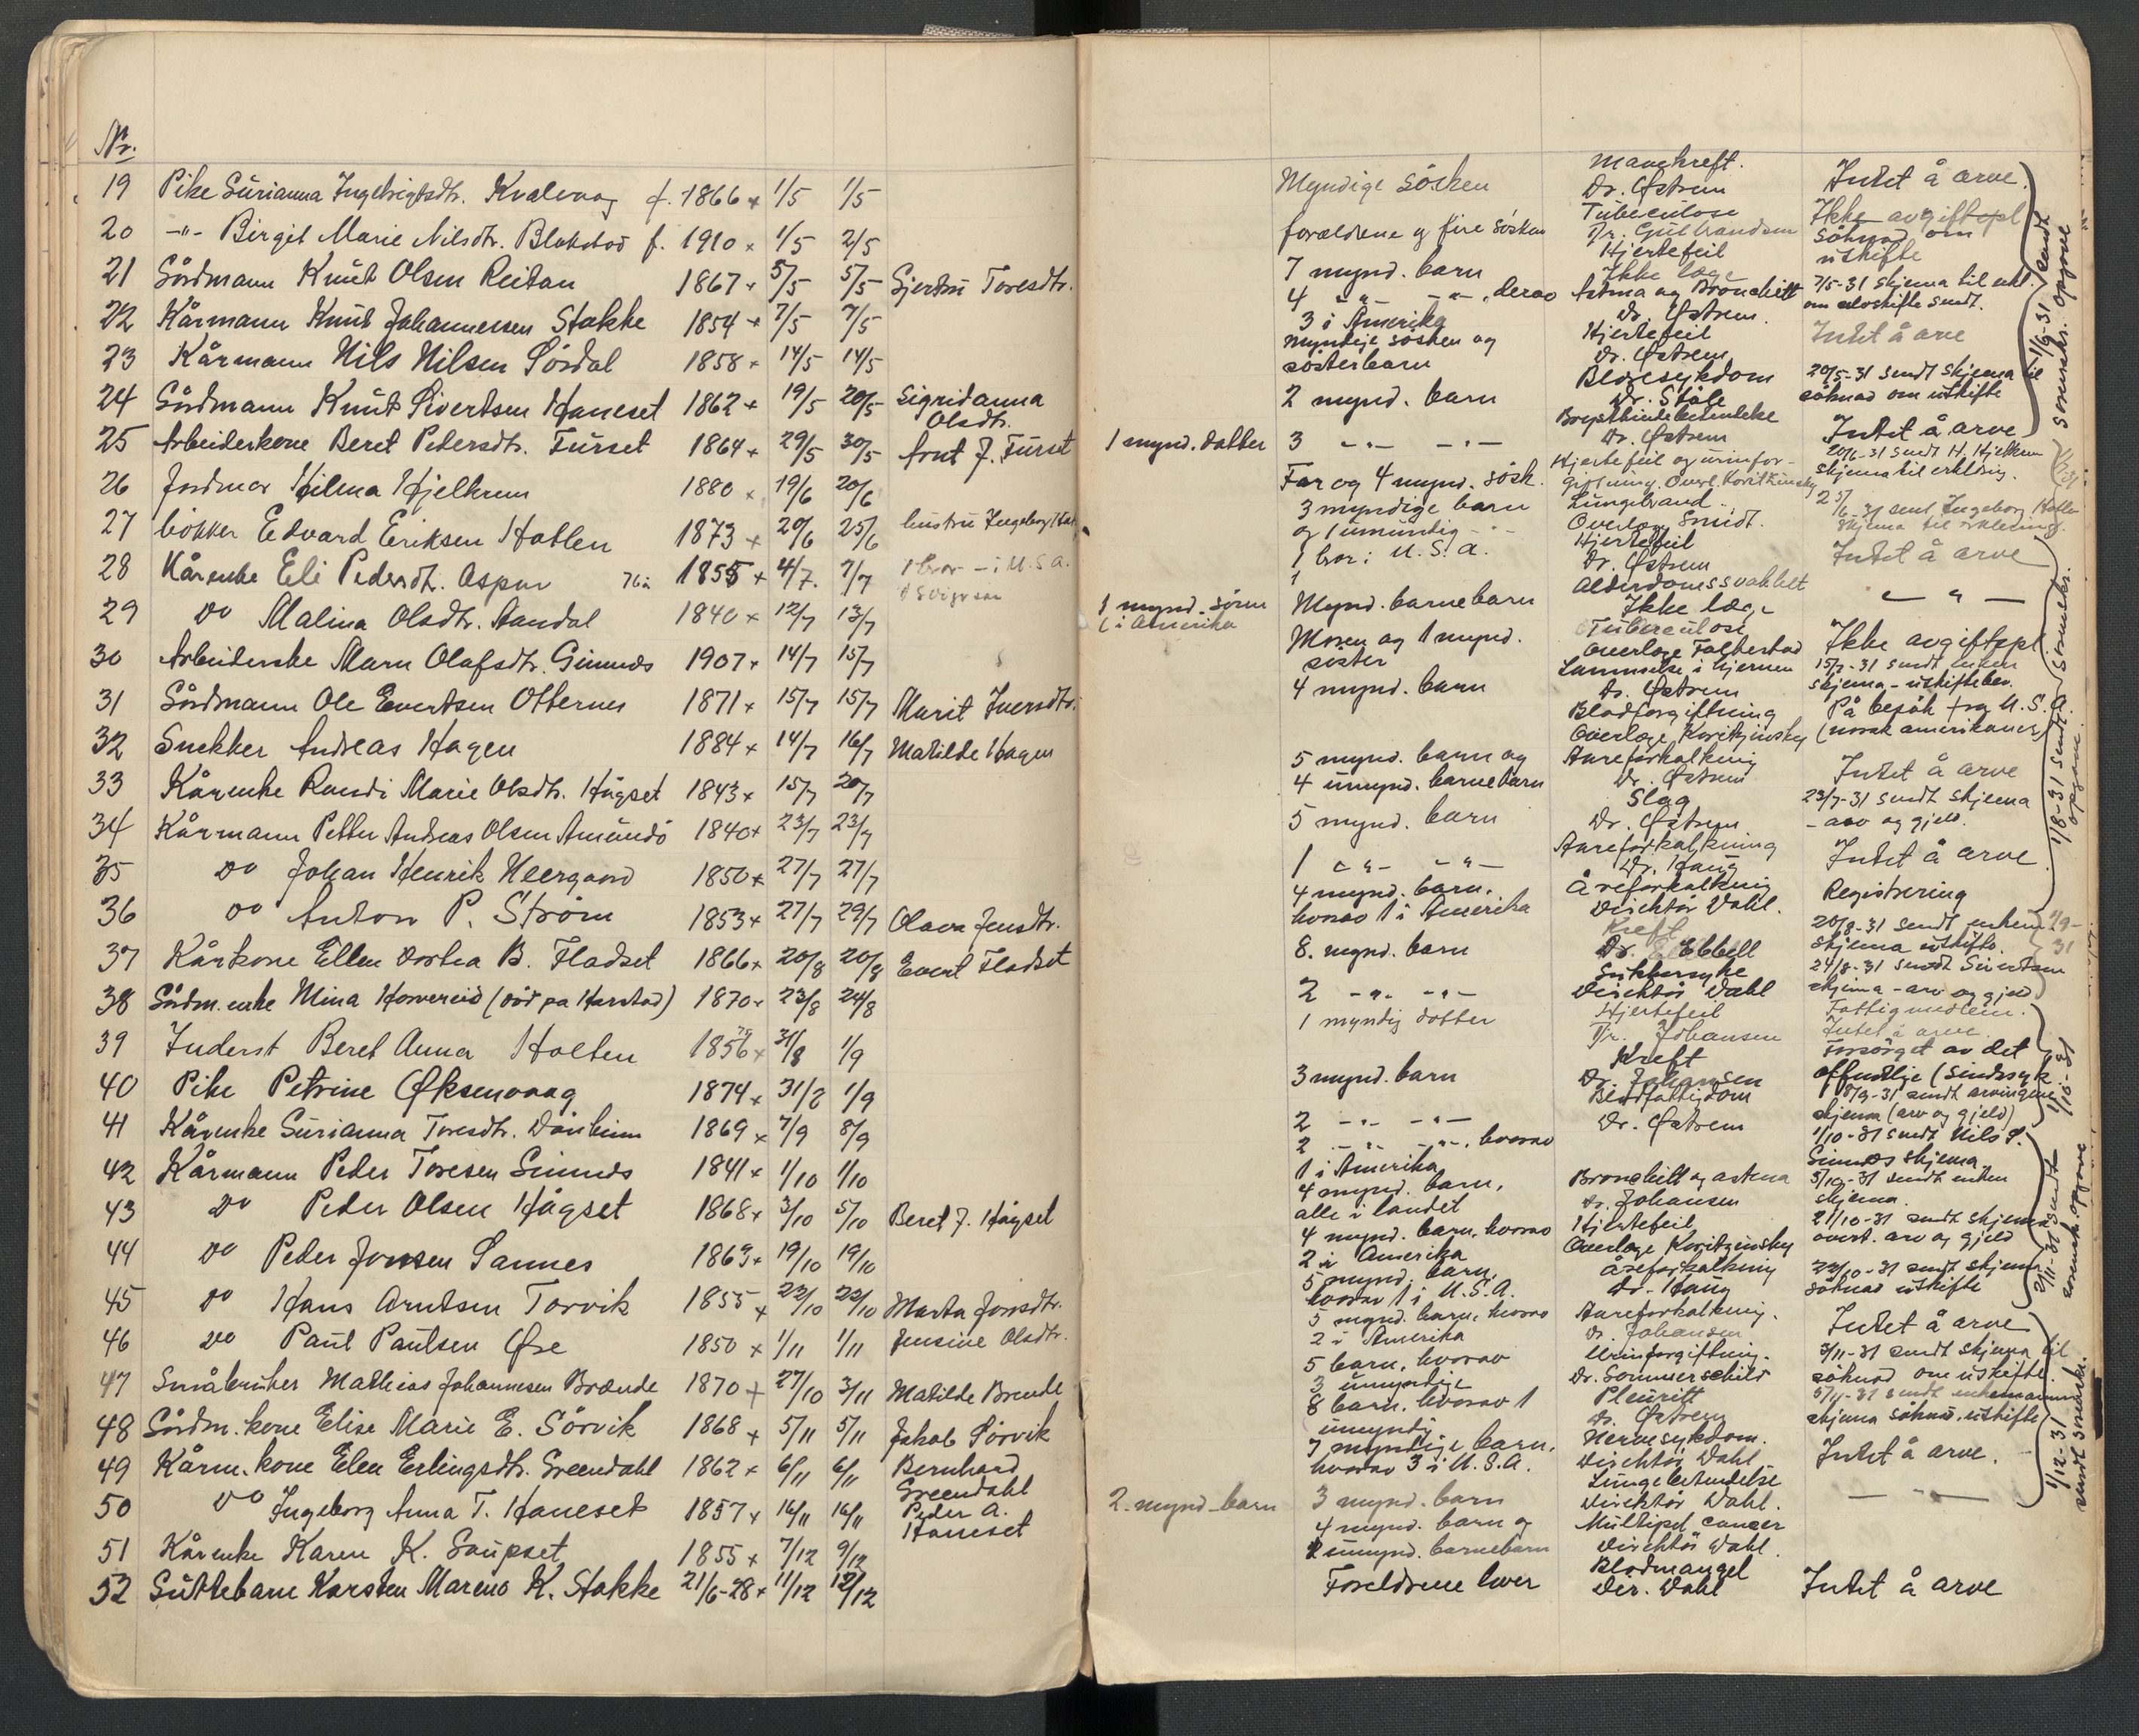 Nr.
19 Pike Sürianna Ingebrigtsdtr. Kvalvaag f. 1866 + 1/5 1/5
20 -"- Birgit Marie Nilsdtr. Blakstad f. 1910 + 1/5 2/5
21 Gårdmann Knut Olsen Reitan 1867 + 5/5 5/5 Gjertrü Toresdtr.
22 Kårmann Knut Johannessen Stokke 1854 + 7/5 7/5
23 Kårmann Nils Nilsen Sördal 1858 + 14/5 14/5
24 Gårdmann Knut Sivertsen Haneset 1862 + 19/5 20/5 Sigridanna
Olsdtr.
25 Arbeiderkone Beret Pedersdtr. Furset 1864 + 29/5 30/5 Arnt J. Furset
26 Jordmor Hilma Hjelkrem 1880 + 19/6 20/6
27 bökker Edvard Eriksen Hatlen 1873 + 20/6 25/6 hustru Ingeborg Hat
28 Kårenke Eli Pedersdtr. Aspen 76 å 1855 + 4/7. 7/7 1 bror - i U.S.A.
29 do Malina Olsdtr. Aandal 1840 + 12/7 13/7
30 Arbeiderske Marn Olafsdtr. Gimnes 1907 + 14/7 15/7
31 Gårdmann Ole Evertsen Otternes 1871 + 15/7 15/7 Marit Iversdtr.
32 Snekker Andreas Hagen 1884 + 14/7 16/7 Matilde Hagen
33 Kårenke Randi Marie Olsdtr. Högset 1843 + 15/7 20/7
34 Kårmann Petter Andreas Olsen Amundö 1840 + 23/7 23/7
35 do Johan Henrik Neergaard 1850 + 27/7 27/7
36 do Anton P. Ström 1853 + 27/7 29/7 Olava Jensdtr.
37 Kårkone Ellen Dorthea B. Fladset 1866 + 20/8 20/8 Evert Fladset
38 Gårdm. enke Mina Korvereid (död pa Harstad) 1870 + 23/8 24/8
39 Inderst Beret Anna Holten 1856 + 31/8 1/9
40 Pike Petrine Øksenvaag 1874 + 31/8 1/9
41 Kårenke Sürianna Toresdtr. Dönheim 1869 + 7/9 8/9
42 Kårmann Peder Toresen Gimnes 1841 + 1/10 1/10
43 do Peder Olsen Högset 1868 + 3/10 5/10 Beret J. Högset
44 do Peder Jonsen Sannes 1869 + 19/10 19/10
45 do Hans Arntsen Torvik 1855 + 22/10 22/10 Marta Jonsdtr.
46 do Paul Paulsen Øre 1850 + 1/11 1/11 Jensine Olsdtr.
47 Småbruker Mathias Johannesen Brænde 1870 + 27/10 3/11 Matilde Brende
48 Gårdm. kone Elise Marie E. Sörvik 1868 + 5/11 5/11 Jakob Sörvik
49 Kårm. kone Elen Erlingsdtr. Svendahl 1862 + 6/11 6/11 Bernhard
Svendahl
50 do Ingeborg Anna T. Haneset 1857 + 16/11 16/11 Peder A.
Haneset
51 Kårenke Karen K. Gaupset 1855 + 7/12 9/12
52 Guttebarn Karsten Mareno K. Stokke 21/6-28 + 11/12 12/12
Myndige sösken
foreldrene og fire sösken
7 mynd. barn
4 -"- -"-, derav
3 i Amerika
myndige sösken og
sösterbarn
2 mynd. barn
1 mynd. datter 3 -"- -"-
Far og 4 mynd. sösk.
3 myndige barn
og 1 umündig -"-
1 bor i U.S.A.
1
1 mynd. sönn Mynd. barnebarn
(i Amerika
Moren og 1 mynd.
söster
4 mynd. barn
5 mynd. barn og
4 umynd. barnebarn
5 mynd. barn
1 -"- -"-
4 mynd. barn,
hvorav 1 i Amerika
8. mynd. barn
2 -"- -"-
1 myndig dotter
3 mynd. barn
2 -"- -"-
2 -"- -"-, hvorav
1 i Amerika
4 mynd. barn,
alle i landet
4 mynd. barn, hvorav
2 i Amerika
5 mynd. barn,
hvorav 1 i U.S.A.
5 mynd. barn, hvorav
2 i Amerika
5 barn, hvorav
3 umyndige
8 barn, hvorav 1
umyndig
7 myndige barn,
hvorav 3 i U.S.A.
2. mynd. barn 3 mynd. barn
4 mynd. barn og
2 umynd. barnebarn
Foreldrene lever
Mavekreft.
Dr. Østrem
Tuberculose
Dr. Gulbrandsen
Hjertefeil
Ikke læge
Astma og Bronchitt
Dr. Østrem.
Hjertefeil
Dr. Østrem
Blæresykdom
Dr. Ståle
Brysthindebetendelse
Dr. Østrem
Hjertefeil og urinfor-
giftning. Overl. Koritzinsky
Lungebrand
Overlæge Smidt.
Hjertefeil
Dr. Østrem
Alderdomssvakhet
Ikke læge
Tuberculose
Overlæge Falkestad
Lammelse i hjernen
Dr. Østrem
Blodforgiftning
Overlæge Koritzinsky
Aareforkalkning
Dr. Østrem
Slag
Dr. Østrem
Aareforkalkning
Dr. Haug
Åreforkalkning
Direktör Dahl.
Kreft
Dr. Ebbell
Sukkersyke
Direktör Dahl
Hjertefeil
Dr. Johansen
Kreft
Dr. Johansen
Blodfattigdom
Dr. Østrem
Bronchitt og astma
Dr. Johansen
Hjertefeil
Overlæge Koritzinsky
Åreforkalkning
Dr. Haug
Aareforkalkning.
Dr. Johansen
Urinforgiftning.
Dr. Sommerschild
Pleuritt
Dr. Østrem
Nervesykdom.
Direktör Dahl
Lungebetendelse
Direktör Dahl.
Multipel cancer
Direktör Dahl.
Blodmangel
Dir. Dahl
Intet å arve.
Ikke avgiftspl
söknad om
uskifte
7/5-31 skjema til erkl.
om selvskifte sendt.
Intet å arve
20/5-31 sendt skjema til
söknad om uskifte
Intet å arve
20/6-31 sendt H. Hjelkrem
skjema til erklæring.
25/6-31 sent Ingeborg Hatlen
skjema til erklæring.
Intet å arve
- " -
Ikke avgiftspl.
15/7-31 sendt enken
skjema - uskiftebev.
På besök fra U.S.A.
(norsk amerikaner)
Intet å arve
23/7-31 sendt skjema
- arv og gjeld.
Intet å arve
Registrering
20/8-31 sendt enkem.
skjema uskifte.
24/8-31 sendt Sivertsen
skjema - arv og gjeld
Fattigmedlem.
Intet å arve.
Forsörget av det
offentlige (sindssyk
8/9-31 sendt arvingene
skjema (arv og gjeld)
1/10-31 sendt Nils P.
Gimnes skjema
5/10-31 sendt enken
skjema.
21/10-31 sendt skjema
overt. arv og gjeld
22/10-31 sendt skjema
söknad uskifte
Intet å arve
3/11-31 sendt skjema til
söknad om uskifte.
5/11-31 sendt enkemann
skjema söknad. uskifte
Intet å arve.
- " -
Intet å arve
1/6-31 sendt
sorenskr. opgave
1/8-31 sendt sorenskr.
opgave.
1/9-31
1/10-31
2/11-31 sendt
sorensk. opgave
1/12-31
sendt sorenskr.